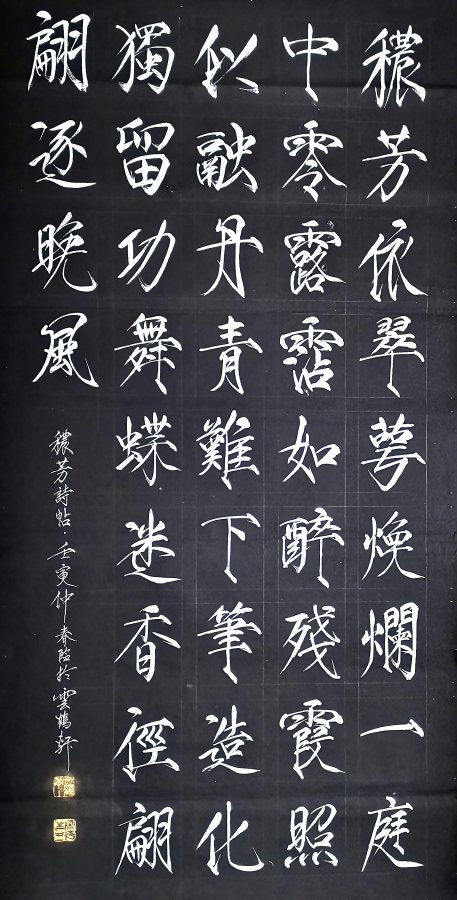 穠芳依翠萼煥爛一庭
中零露霑如醉殘霞照
似融丹青難下筆造化
獨留功舞蝶迷香徑翩
翩逐晚風
穠芳詩帖壬寅仲春臨於雲鶴軒